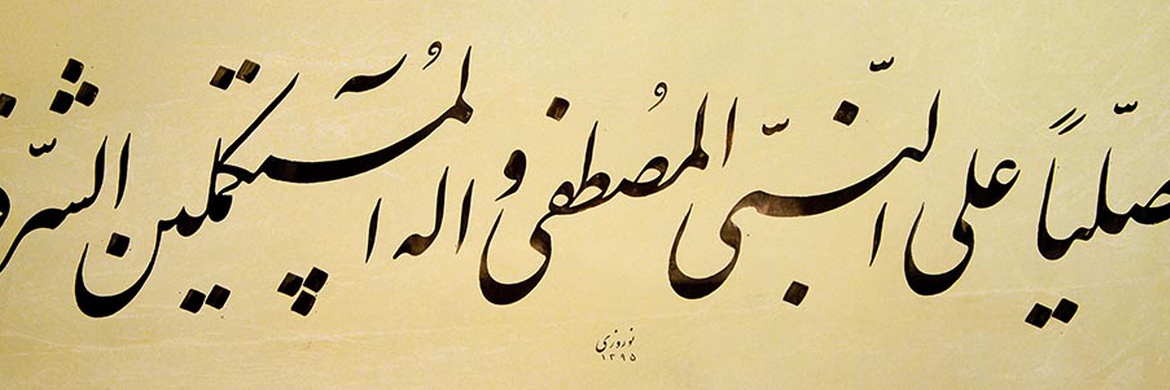 صلّیاً علی النبّی المُصطفی و اله المُستکملین الشّرف
نوروزی
۱۳۹۵